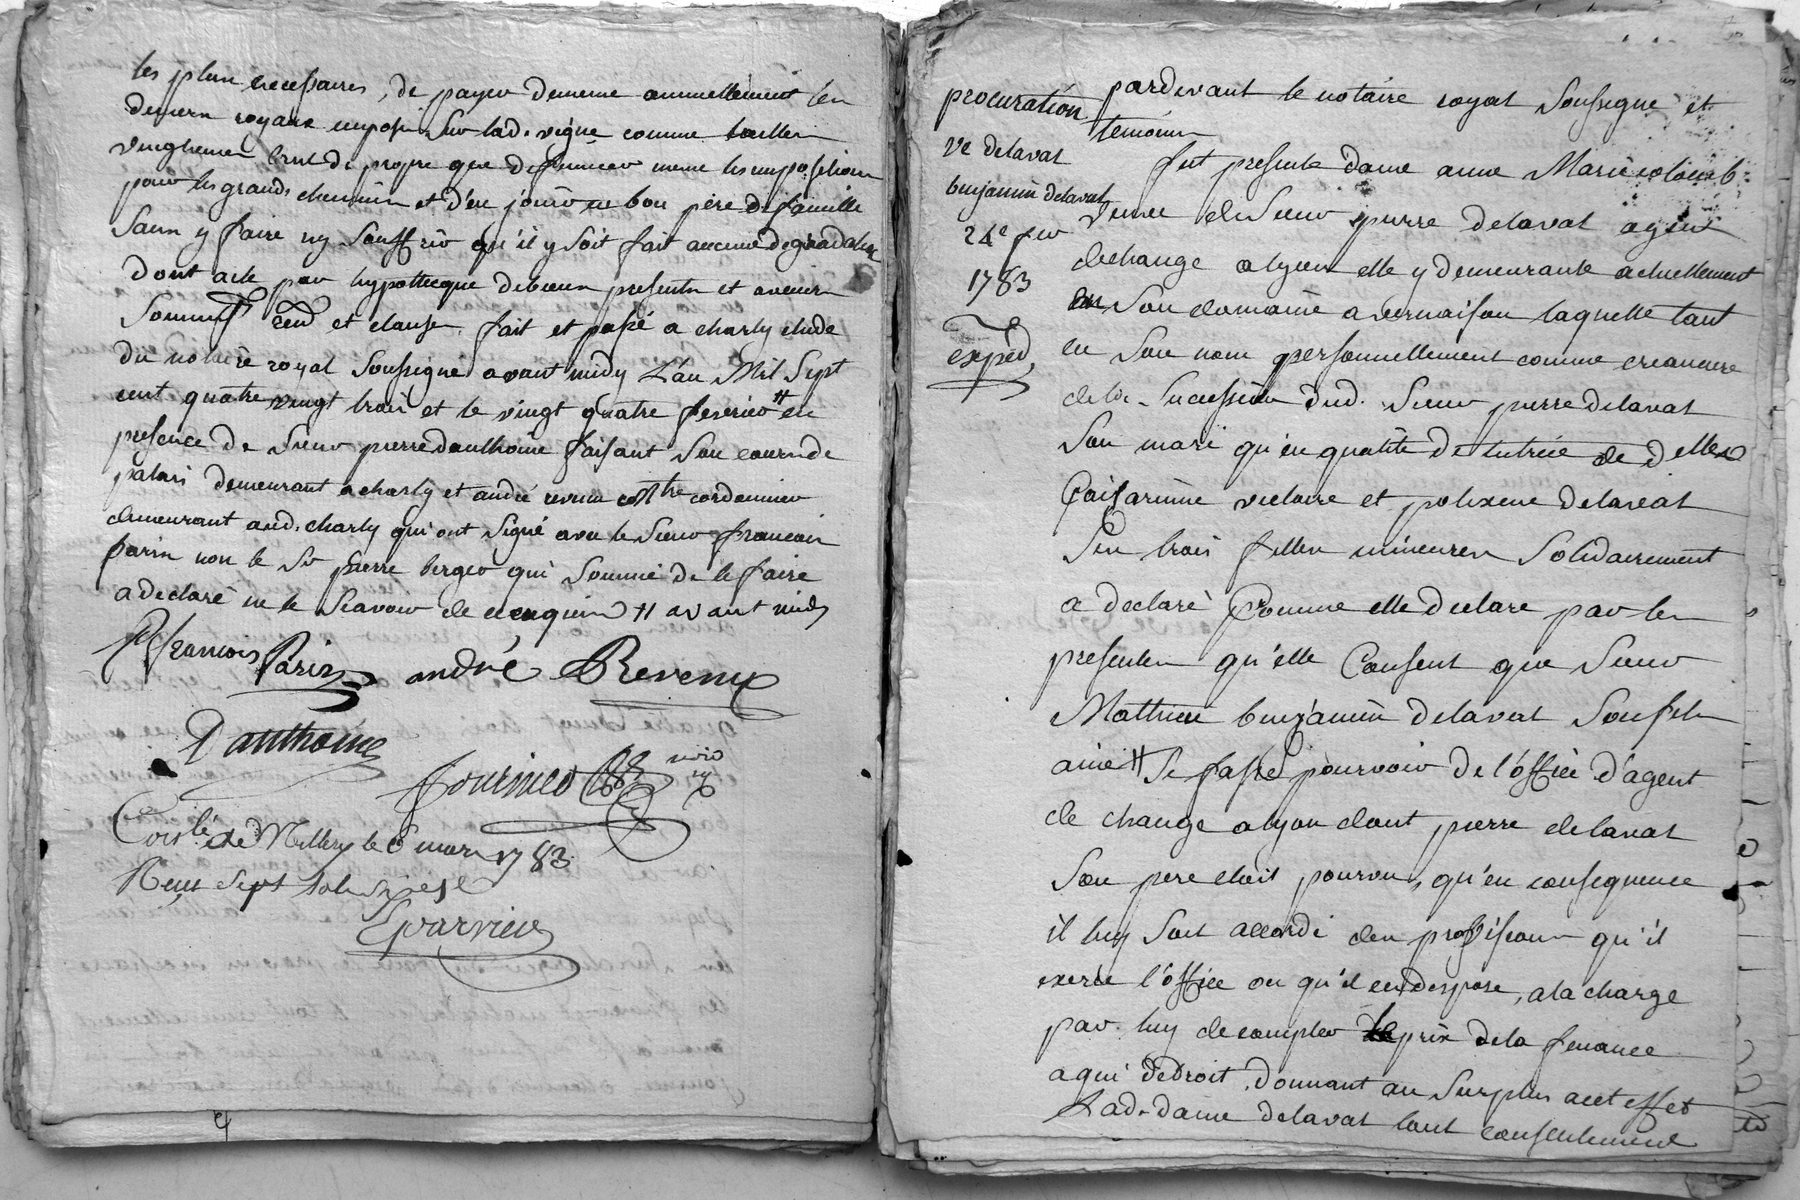 les plus necessaires, de payer dememe annuellement les
deniers royaux imposés sur lad. vigne comme tailles
vingtiemes de propre que deffinicer meme les impositions
pour les grands chemins et d'en jouir en bon pere de famille
sans y faire ny souffrir qu'il y soit fait aucune degradation
dont acte par hypotteque de biens presents et avenir
et clauses. fait et passé a charly etude
du notaire royal soussigné avant midy L'an Mil sept
cent quatre vingt trois et le vingt quatre fevrier # en
presence de sieur pierre danthoine faisant son cours de
palais demeurant a charly et andré revenu mtre cordonnier
demeurant aud. charly qui ont signé avec le sieur francois
parin non le sr pierre berger qui sommé de le faire
a declaré ne le scavoir de ce enquis # avant midy
francois Parin andré Revenu
Danthoine
fournier
Con.lé de Millery le 6 mars 1783
Reçu sept sols six
Lparvieu
procuration
ve delavat
benjamin delavat
24e fev
1783
expéd
pardevant le notaire royal soussigné et
temoins
fut presente dame anne Marie colomb
veuve de sieur pierre delavat agent
dechange a lyon elle y demeurante actuellement
en son domaine a vernaison laquelle tant
en son nom personnellement comme creanciere
de la succession dud. sieur pierre delavat
son mari qu'en qualité de tutrice de delles
victoire et polixene delavat
ses trois filles mineures solidairement
a declaré comme elle declare par les
presentes qu'elle consent que sieur
Mathieu benjamin delavat son fils
ainé # se fasse pourvoir de l'office d'agent
de change a lyon dont pierre delavat
son pere etoit pourvu, qu'en consequence
il luy soit accordé des provisions qu'il
exerce l'office ou qu'il en dispose, a la charge
par luy de compter le prix de la finance
a qui de droit. donnant au surplus a cet effet
Lad. dame delavat tout consentement